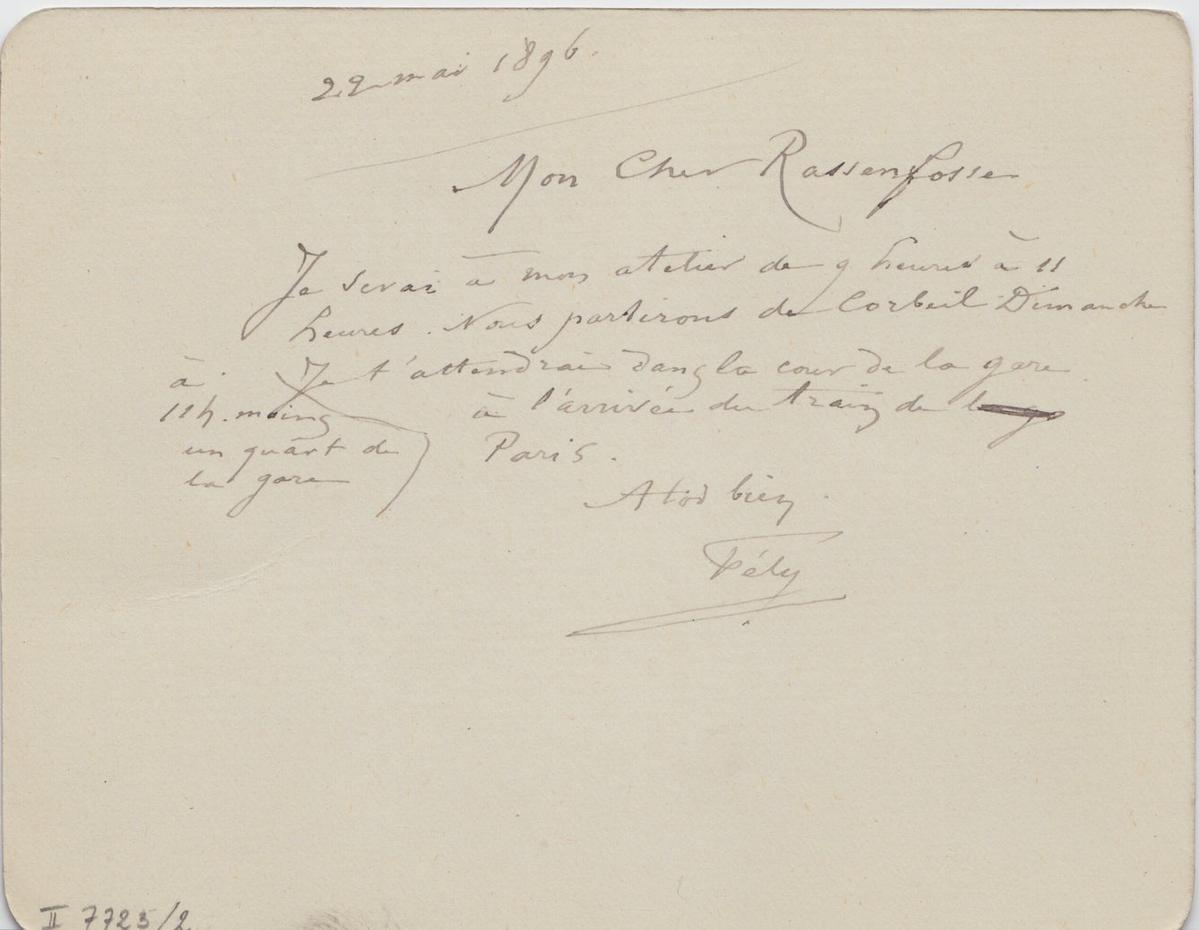 22 mai 1896.
Mon Cher Rassenfosse
Je serai à mon atelier de 9 heures à 11
heures. Nous partirons de Corbeil Dimanche
à
11h. moins
un quart de
la gare
Je t'attendrai dans la cour de la gare
à l'arrivée du train de
Paris.
A toi bien
Fély
II 7723/2